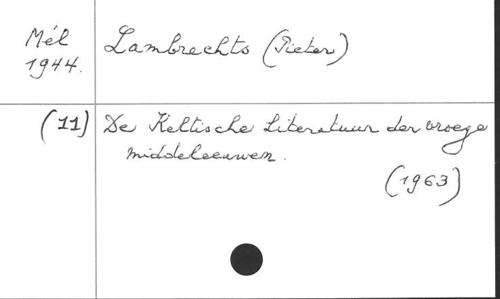 Mél
1944.
Lambrechts (Pieter)
(11)
De Keltische Literatuur der vroege
middeleeuwen.
(1963)